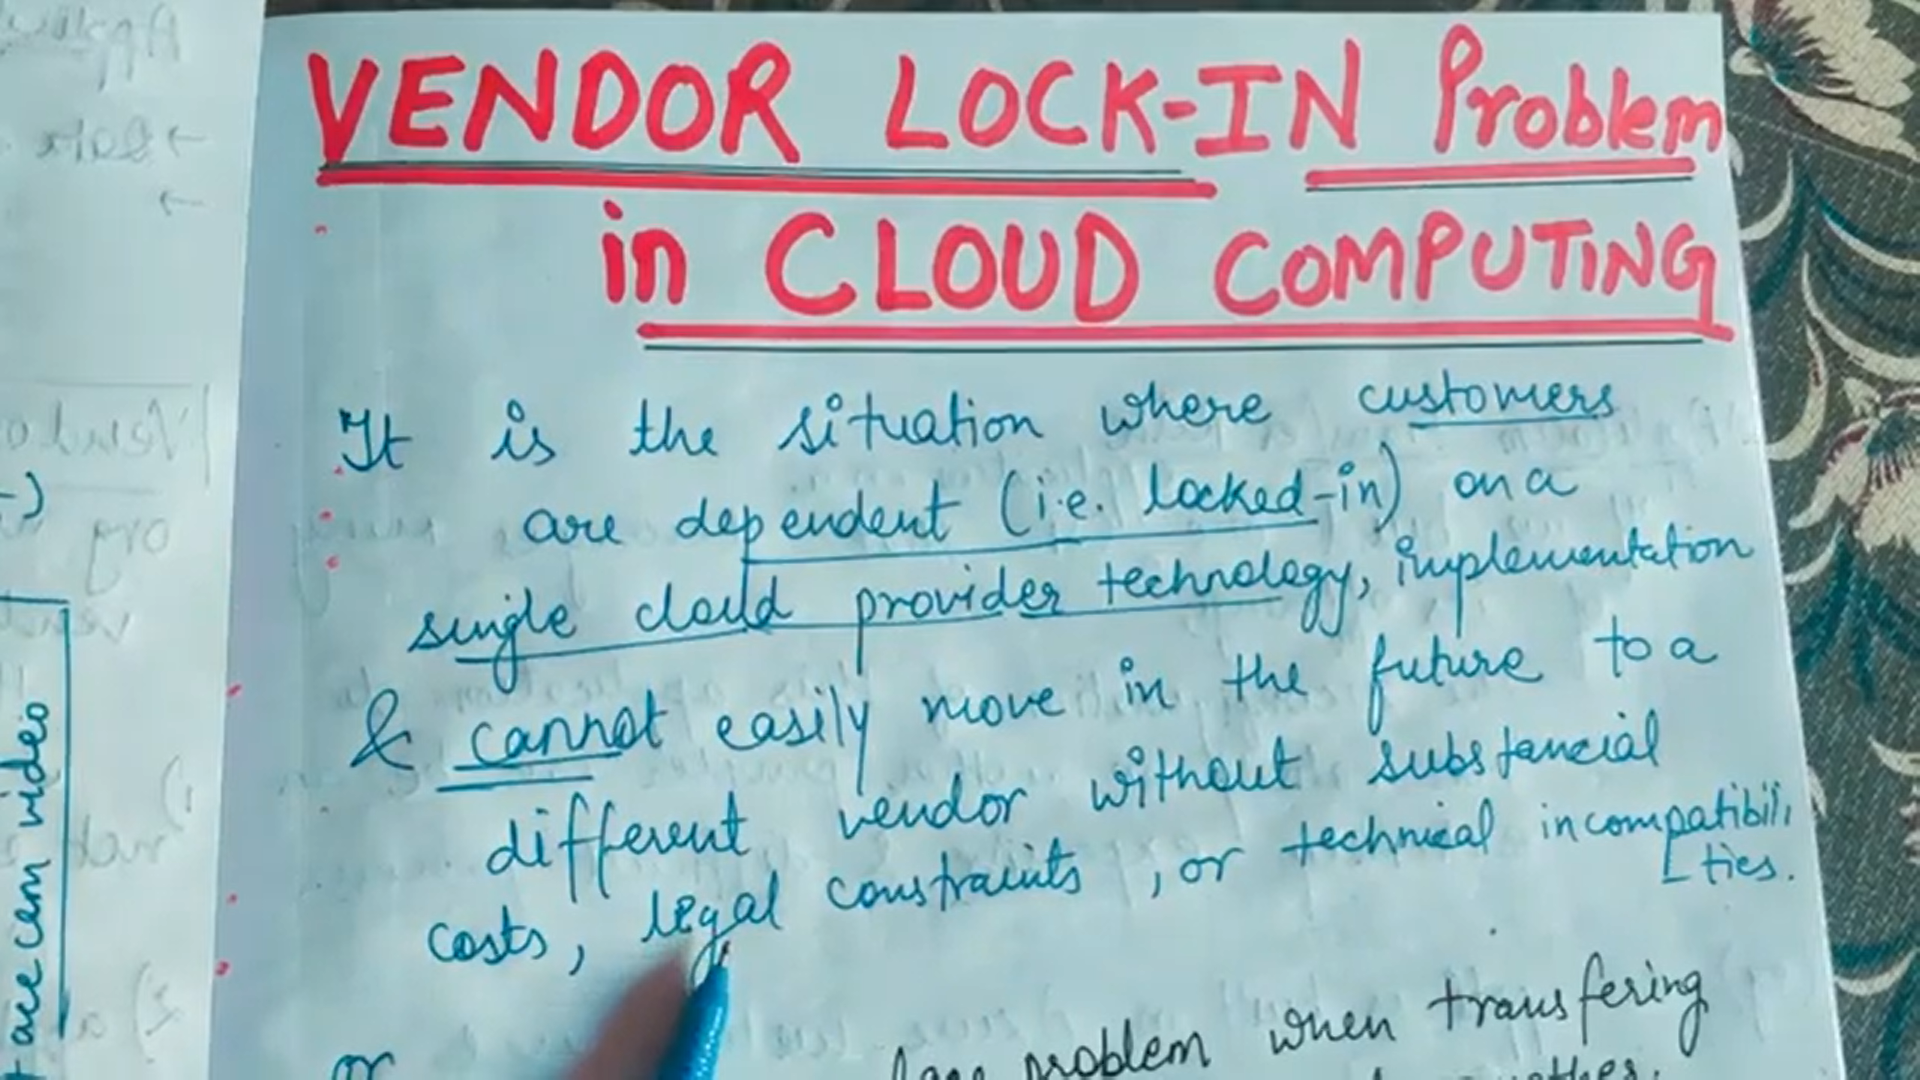 VENDOR LOCK-IN Problem
in CLOUD COMPUTING
It is the situation where customers
are dependent (i.e. locked-in) on a
single cloud provider technology, implementation
& cannot easily move in the future to a
different vendor without substancial
costs, legal constraints, or technical incompatibili
ties.
or problem when transfering
video